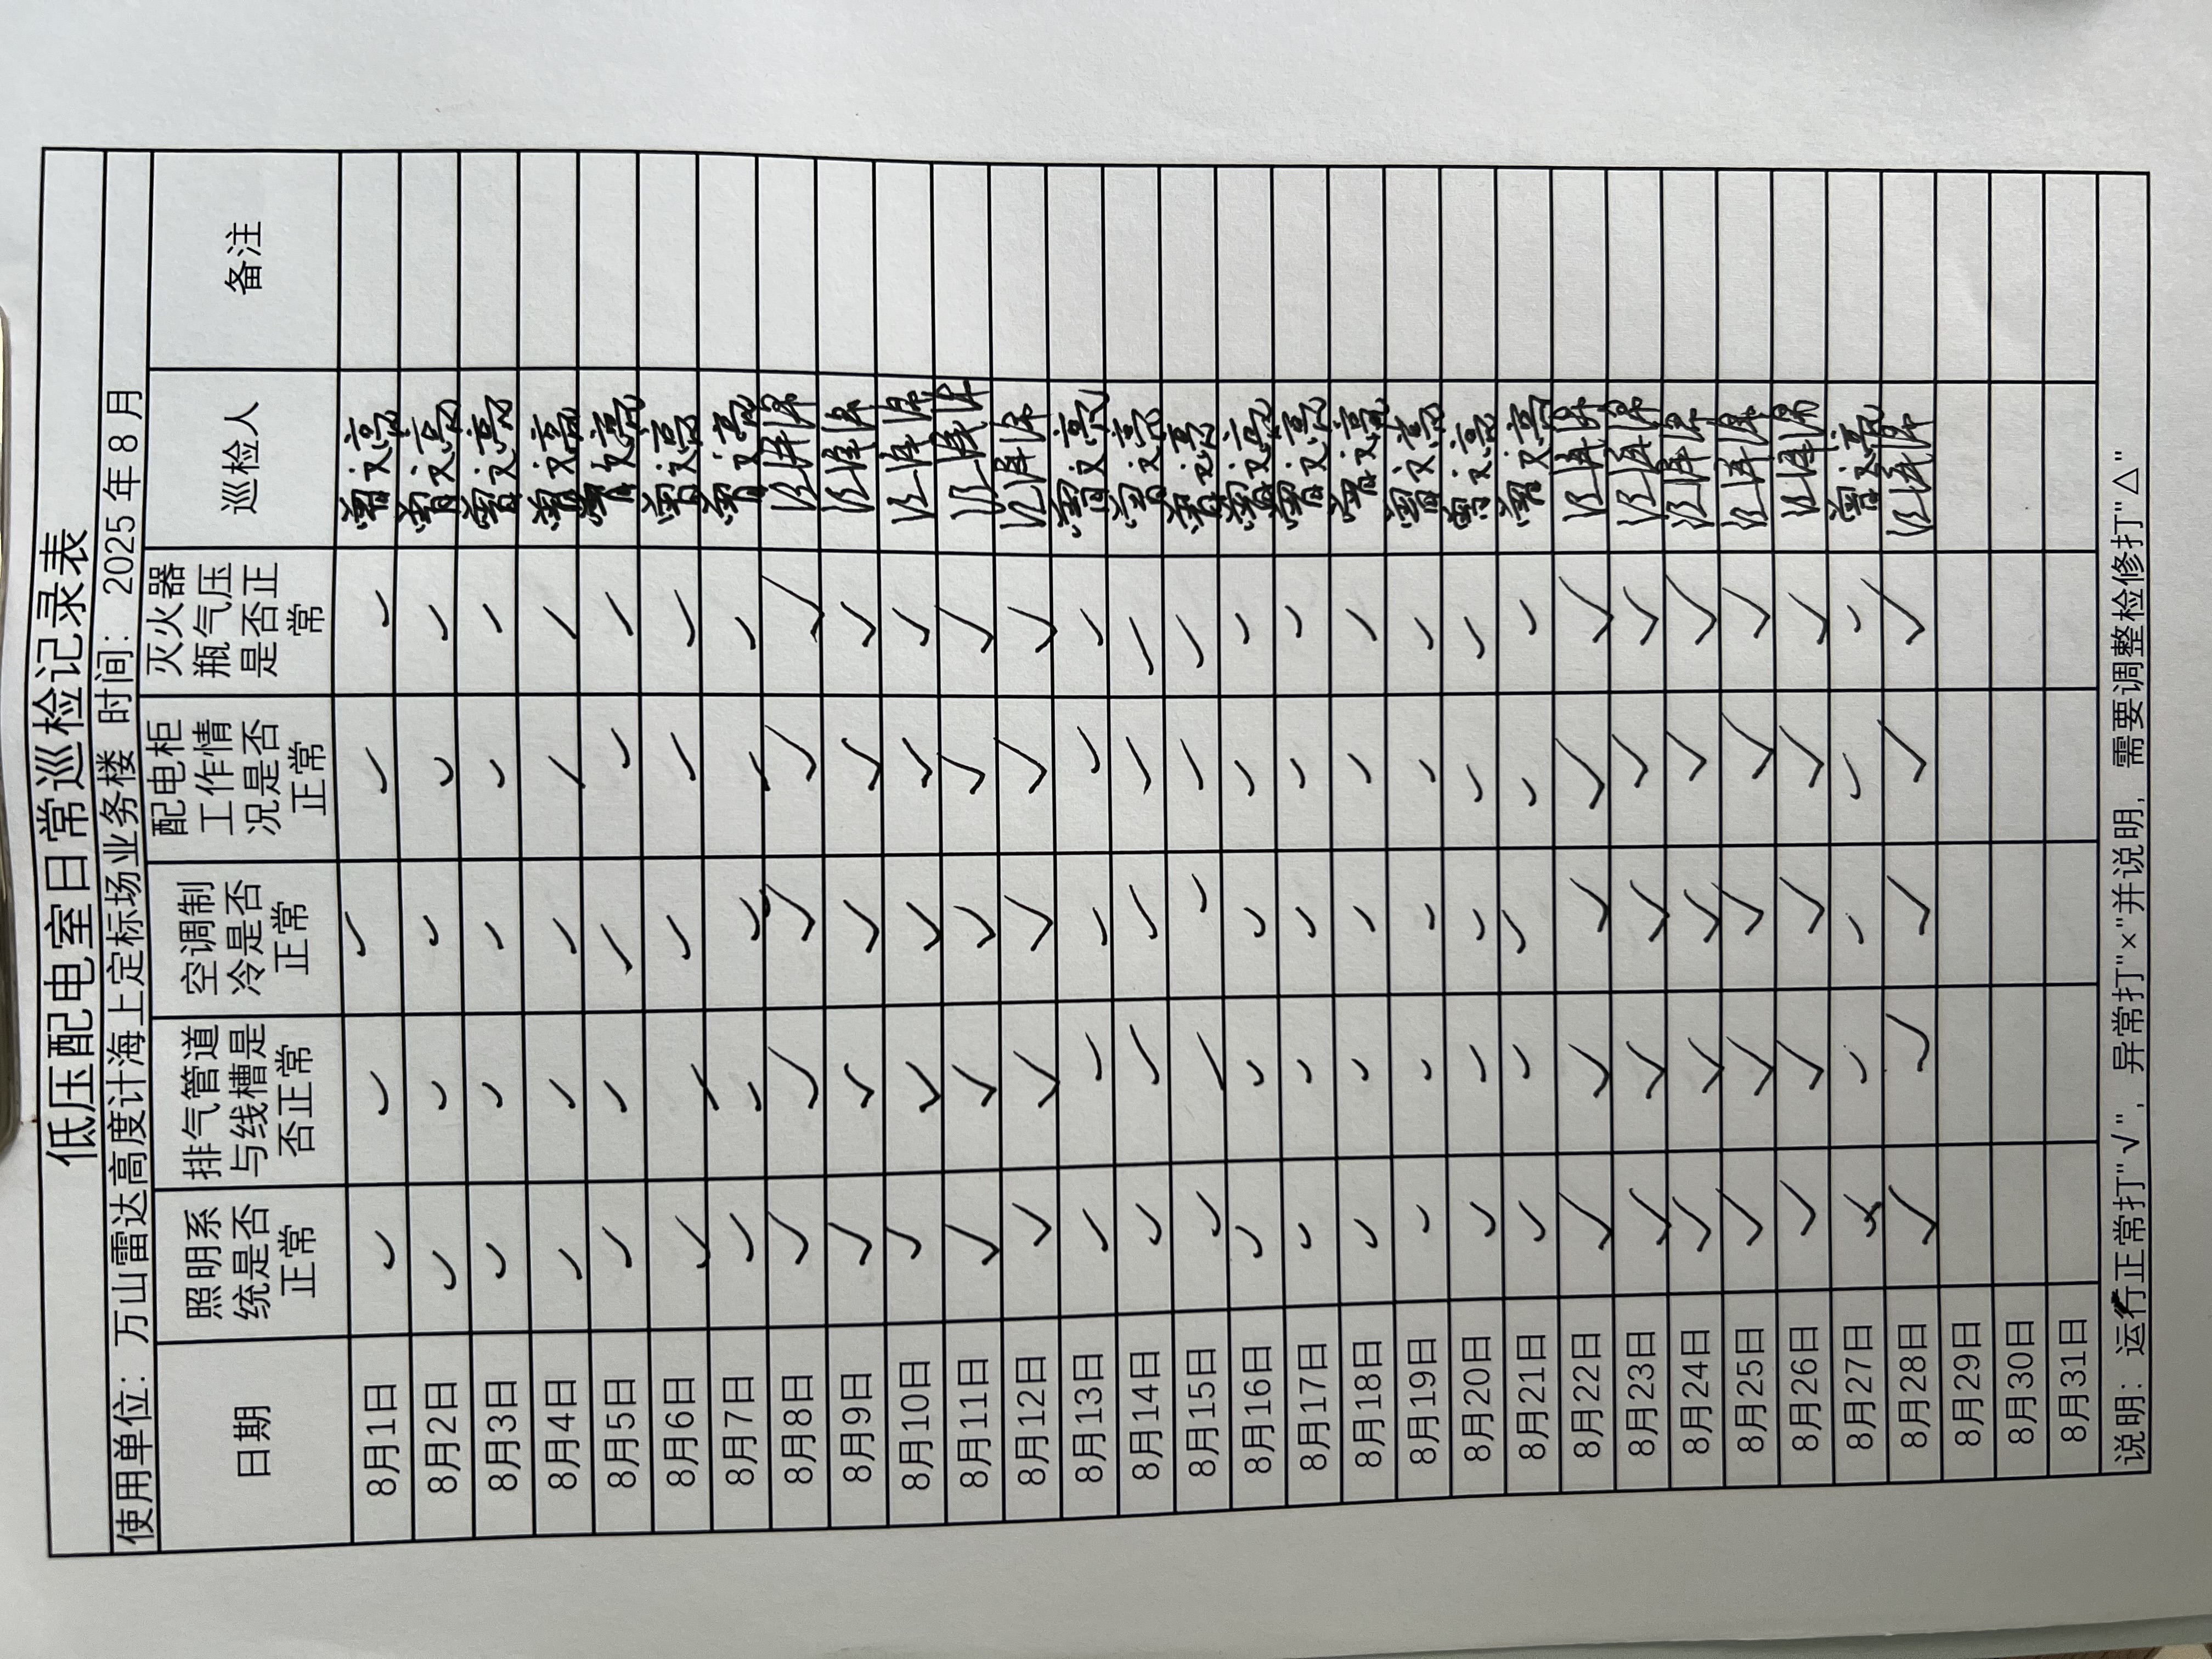 低压配电室日常巡检记录表
使用单位：万山雷达高度计海上定标场业务楼 时间：2025年8月
日期 照明系统是否正常 排气管道与线槽是否正常 空调制冷是否正常 配电柜工作情况是否正常 灭火器瓶气压是否正常 巡检人 备注
8月1日 ✓ ✓ ✓ ✓ ✓ 曾文亮
8月2日 ✓ ✓ ✓ ✓ ✓ 曾文亮
8月3日 ✓ ✓ ✓ ✓ ✓ 曾文亮
8月4日 ✓ ✓ ✓ ✓ ✓ 曾文亮
8月5日 ✓ ✓ ✓ ✓ ✓ 曾文亮
8月6日 ✓ ✓ ✓ ✓ ✓ 曾文亮
8月7日 ✓ ✓ ✓ ✓ ✓ 曾文亮
8月8日 ✓ ✓ ✓ ✓ ✓
8月9日 ✓ ✓ ✓ ✓ ✓
8月10日 ✓ ✓ ✓ ✓ ✓
8月11日 ✓ ✓ ✓ ✓ ✓
8月12日 ✓ ✓ ✓ ✓ ✓
8月13日 ✓ ✓ ✓ ✓ ✓ 曾文亮
8月14日 ✓ ✓ ✓ ✓ ✓ 曾文亮
8月15日 ✓ ✓ ✓ ✓ ✓ 曾文亮
8月16日 ✓ ✓ ✓ ✓ ✓ 曾文亮
8月17日 ✓ ✓ ✓ ✓ ✓ 曾文亮
8月18日 ✓ ✓ ✓ ✓ ✓ 曾文亮
8月19日 ✓ ✓ ✓ ✓ ✓ 曾文亮
8月20日 ✓ ✓ ✓ ✓ ✓ 曾文亮
8月21日 ✓ ✓ ✓ ✓ ✓ 曾文亮
8月22日 ✓ ✓ ✓ ✓ ✓
8月23日 ✓ ✓ ✓ ✓ ✓
8月24日 ✓ ✓ ✓ ✓ ✓
8月25日 ✓ ✓ ✓ ✓ ✓
8月26日 ✓ ✓ ✓ ✓ ✓
8月27日 ✓ ✓ ✓ ✓ ✓ 曾文亮
8月28日 ✓ ✓ ✓ ✓ ✓
8月29日
8月30日
8月31日
说明：运行正常打"√"，异常打"×"并说明，需要调整检修打"△"